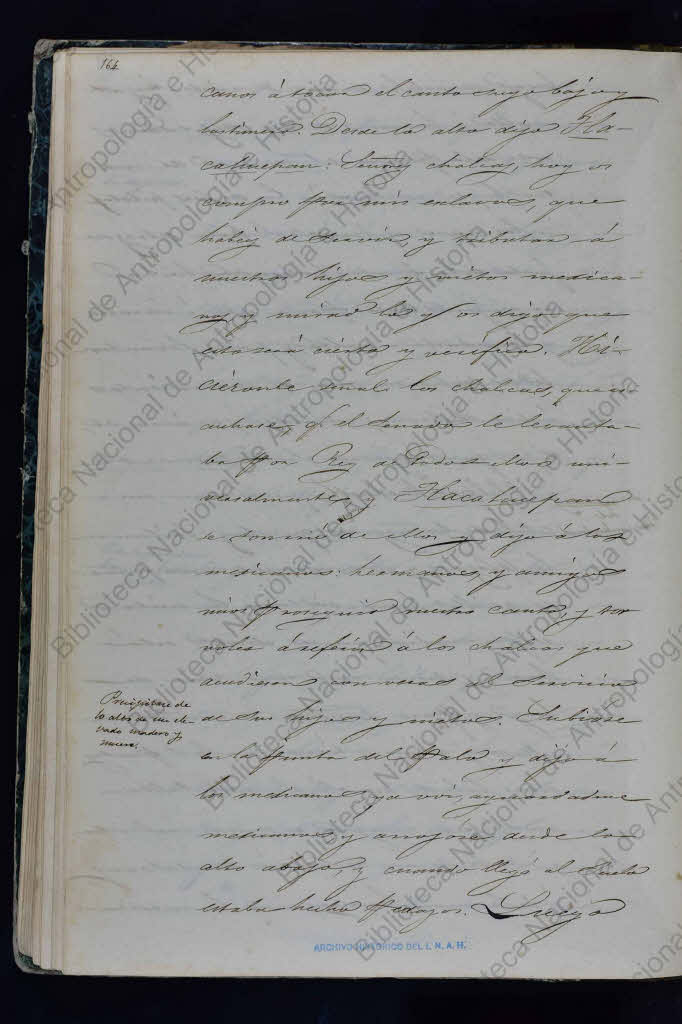 164
canos á tocar el canto suyo bajo y
lastimero. Desde lo alto dijo Tla-
cahuepan: Sennoy chalcas, hoy os
compro por mis esclavos, que
habeis de servir, y tributar á
nuestros hijos y nietos mexica-
nos, y mirad lo q̃ os digo que
esto será cierto y verifico. Hi-
ciéronle señal los chalcas, que
bajase, q̃ el Senado le levanta-
ba por Rey de todos ellos uni-
versalmente, y Tlacahuepan
se sonrió de ellos y dijo á los
mexicanos: hermanos, y amigos
mios proseguid vuestro canto, y
á los chalcas que
acudiesen con veras al servicio
de sus hijos y nietos. Subióse
en la punta del palo y dijo á
los mexicanos, ya voy, aguardadme
mexicanos, y arrojóse desde lo
alto abajo, y cuando llegó al suelo
estaba hecho pedazos. Luego
Precipítase de
lo alto de un ele-
vado madero y
muere.
ARCHIVO HISTORICO DEL I. N. A. H.
Biblioteca Nacional de Antropología e Historia